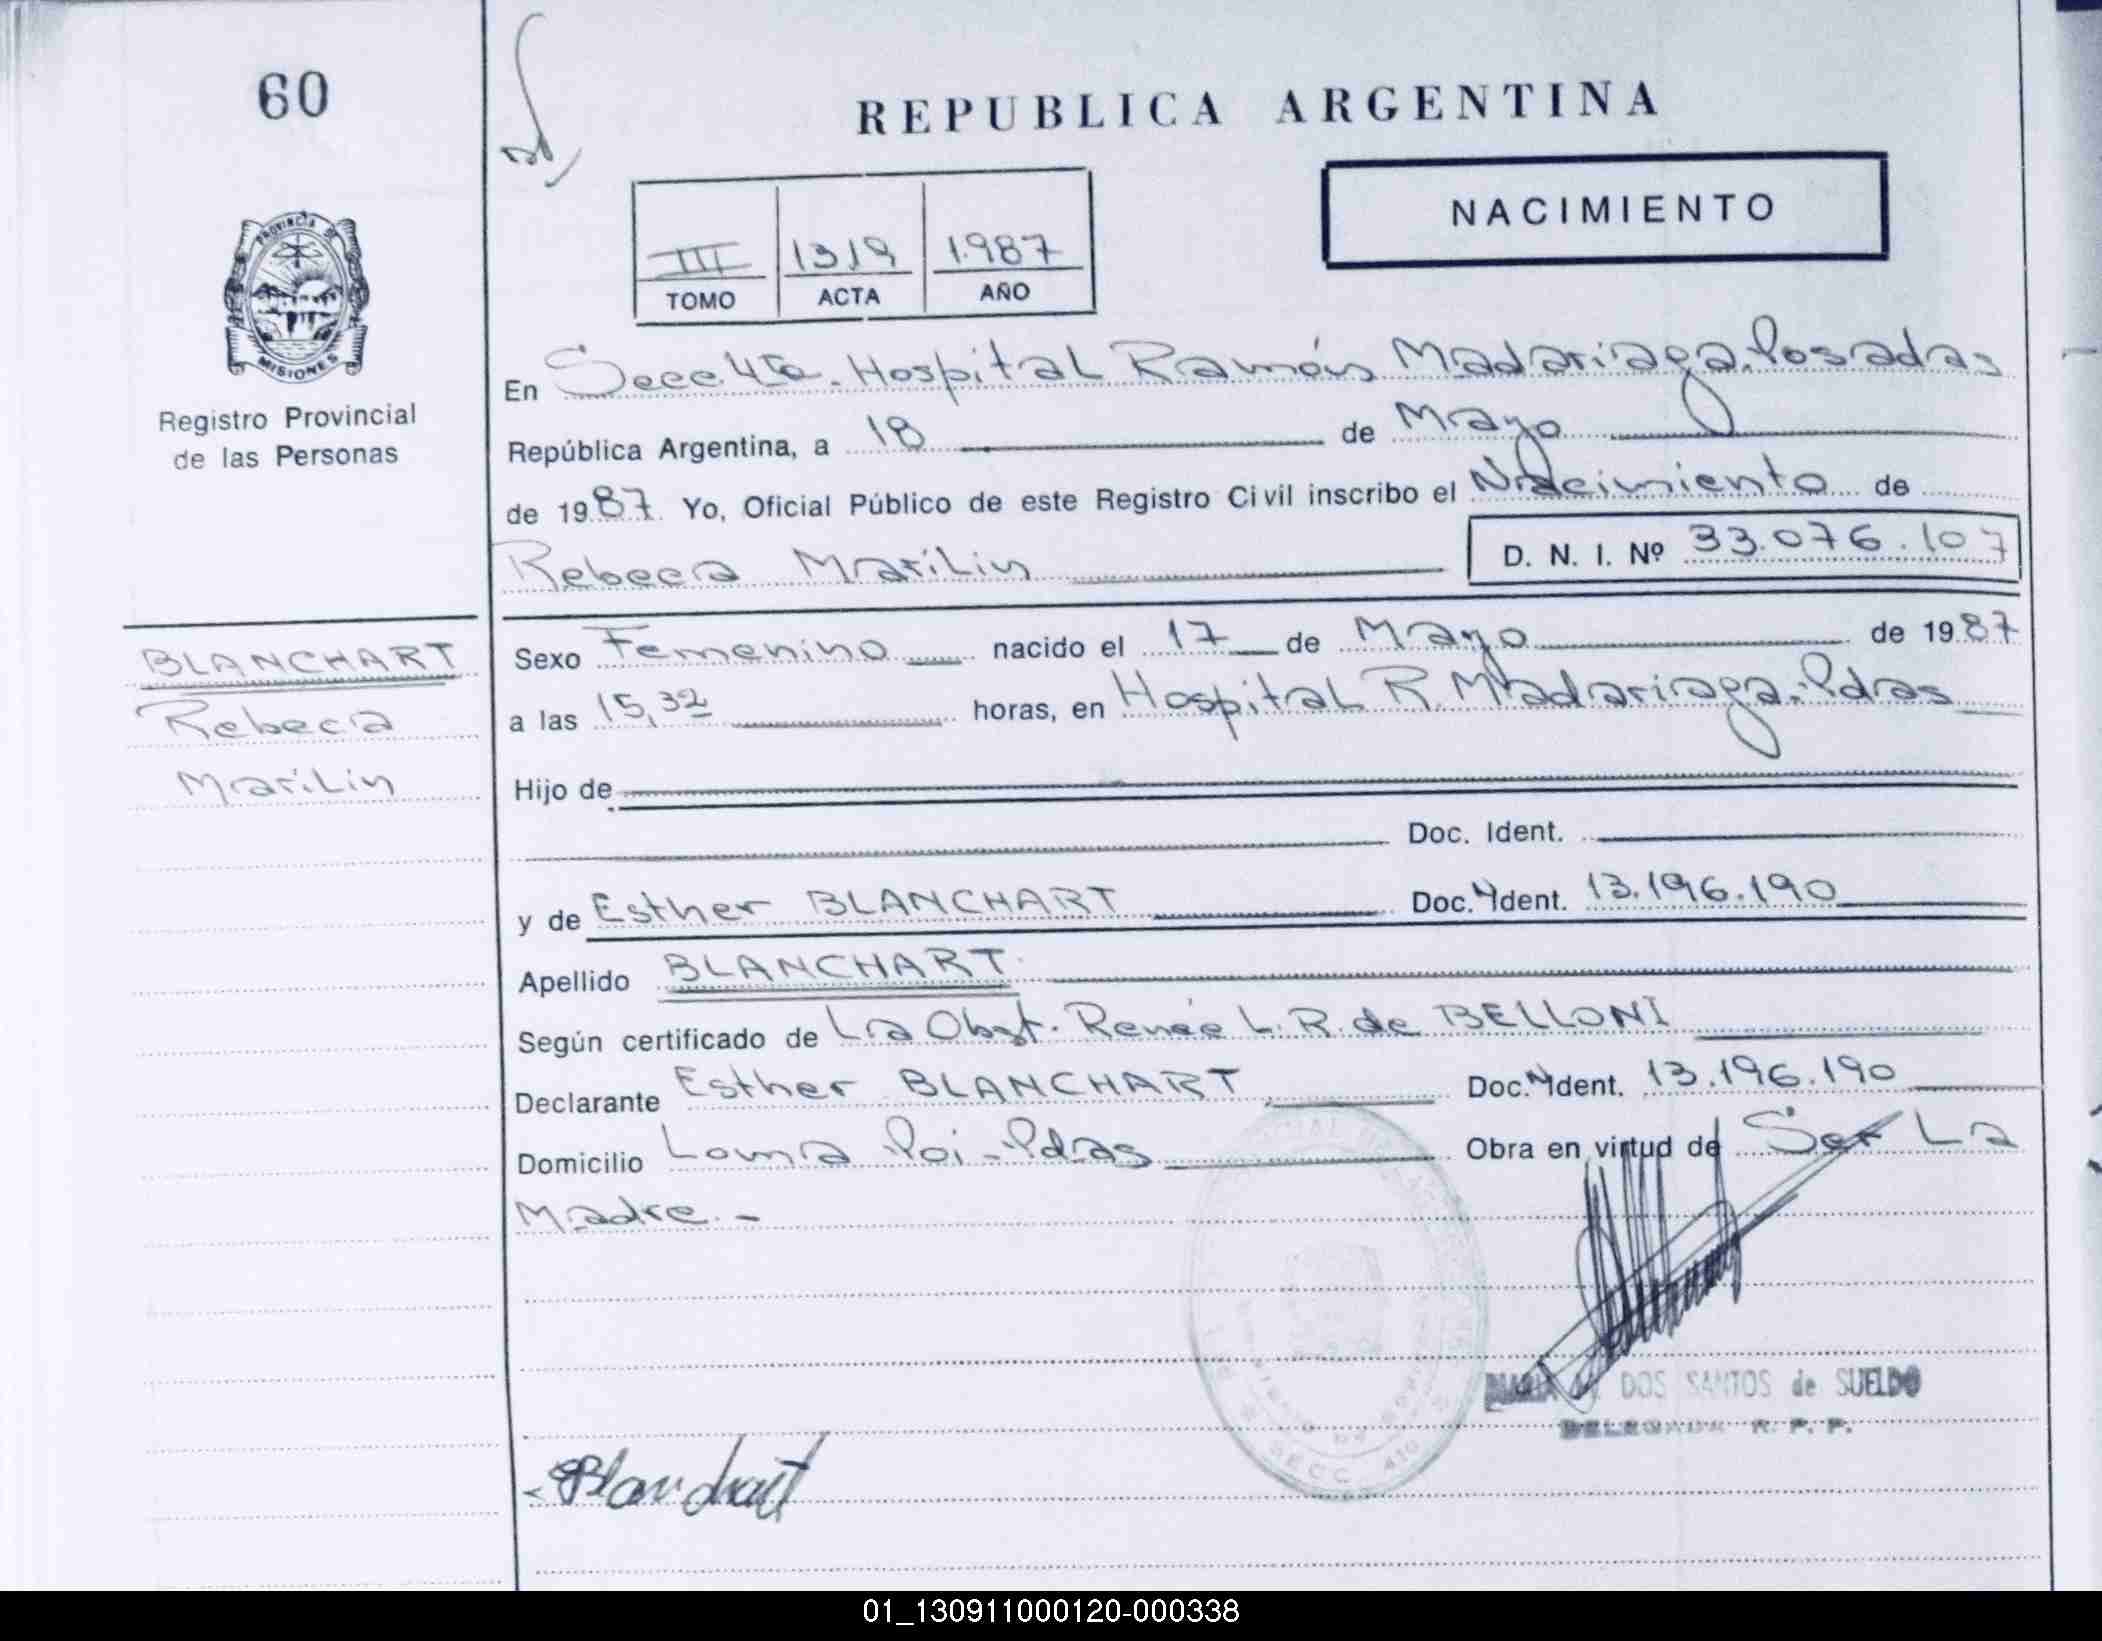 60
REPUBLICA ARGENTINA
NACIMIENTO
III 1319 1.987
TOMO ACTA AÑO
PROVINCIA DE
MISIONES
Registro Provincial
de las Personas
En Secc. 4ta. Hospital Ramón Madariaga. Posadas
República Argentina, a 18 de Mayo
de 1987 Yo, Oficial Público de este Registro Civil inscribo el Nacimiento de
Rebeca Marilin D. N. I. Nº 33.076.107
BLANCHART
Rebeca
Marilin
Sexo Femenino nacido el 17 de Mayo de 1987
a las 15,32 horas, en Hospital R. Madariaga. Pdas
Hijo de
Doc. Ident.
y de Esther BLANCHART Doc. Ident. 13.196.190
Apellido BLANCHART
Según certificado de La Obst. Renée L. R. de BELLONI
Declarante Esther BLANCHART Doc. Ident. 13.196.190
Domicilio Loma Poi - Pdas Obra en virtud de Ser La
Madre. -
MARIA DOS SANTOS de SUELDO
DELEGADA R. P. P.
SECC. 4ta
Blanchart
01_130911000120-000338